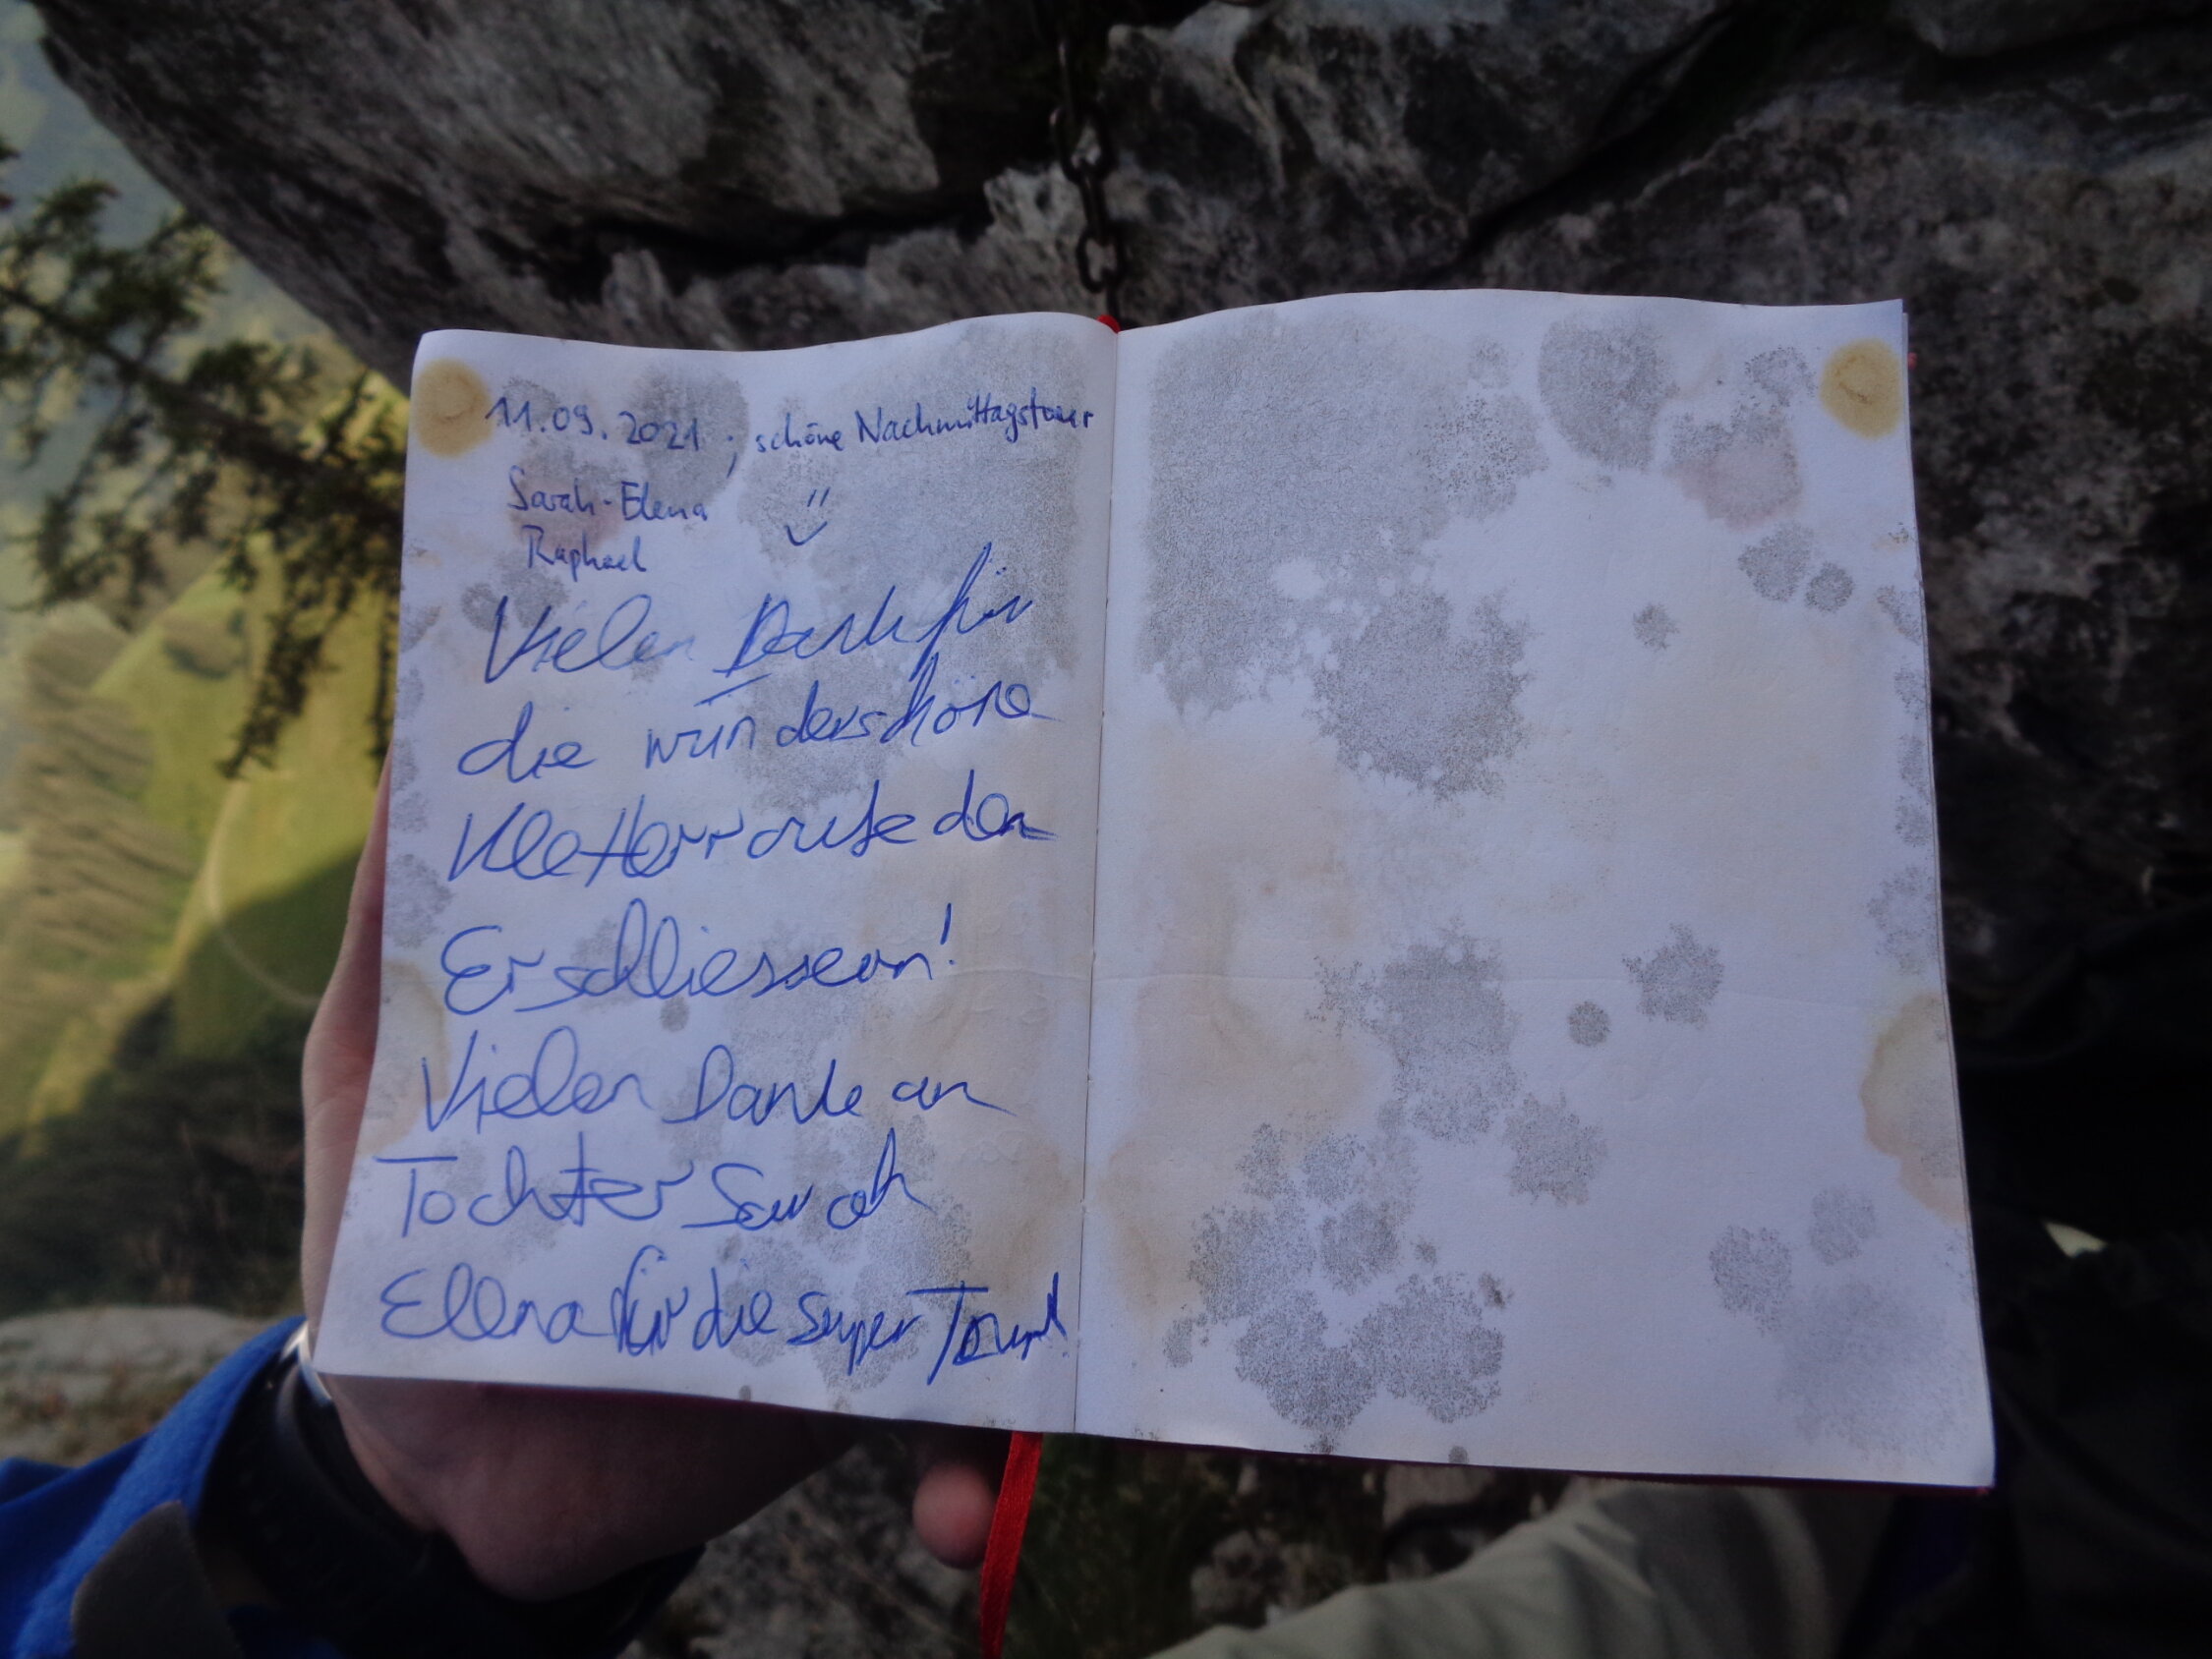 11.09.2021 ; schöne Nachmittagstour
Sarah-Elena
Raphael
Vielen Dank für
die wunderschöne
Kletterroute den
Erschliessern!
Vielen Dank an
Tochter Sarah
Elena für die super Tour!